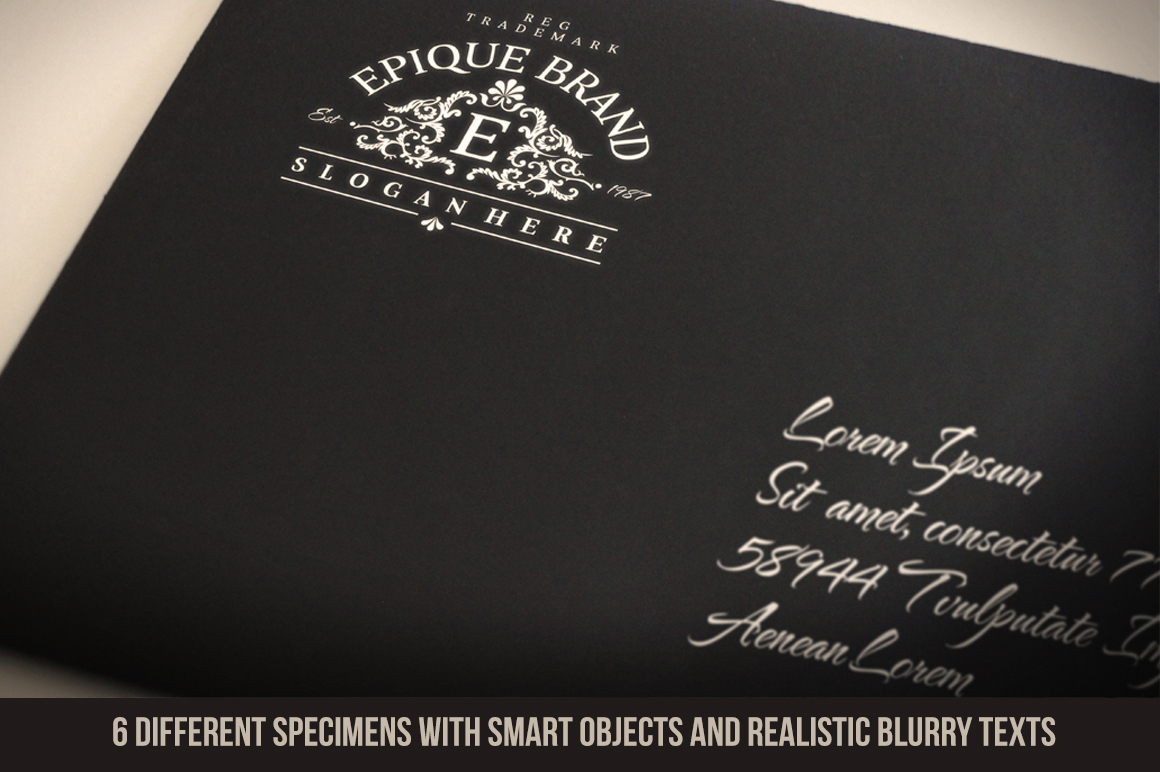 REG
TRADEMARK
EPIQUE BRAND
E
Est
1987
SLOGAN HERE
Lorem Ipsum
Sit amet, consectetur
58944 Tvulputate
Aenean Lorem
6 DIFFERENT SPECIMENS WITH SMART OBJECTS AND REALISTIC BLURRY TEXTS